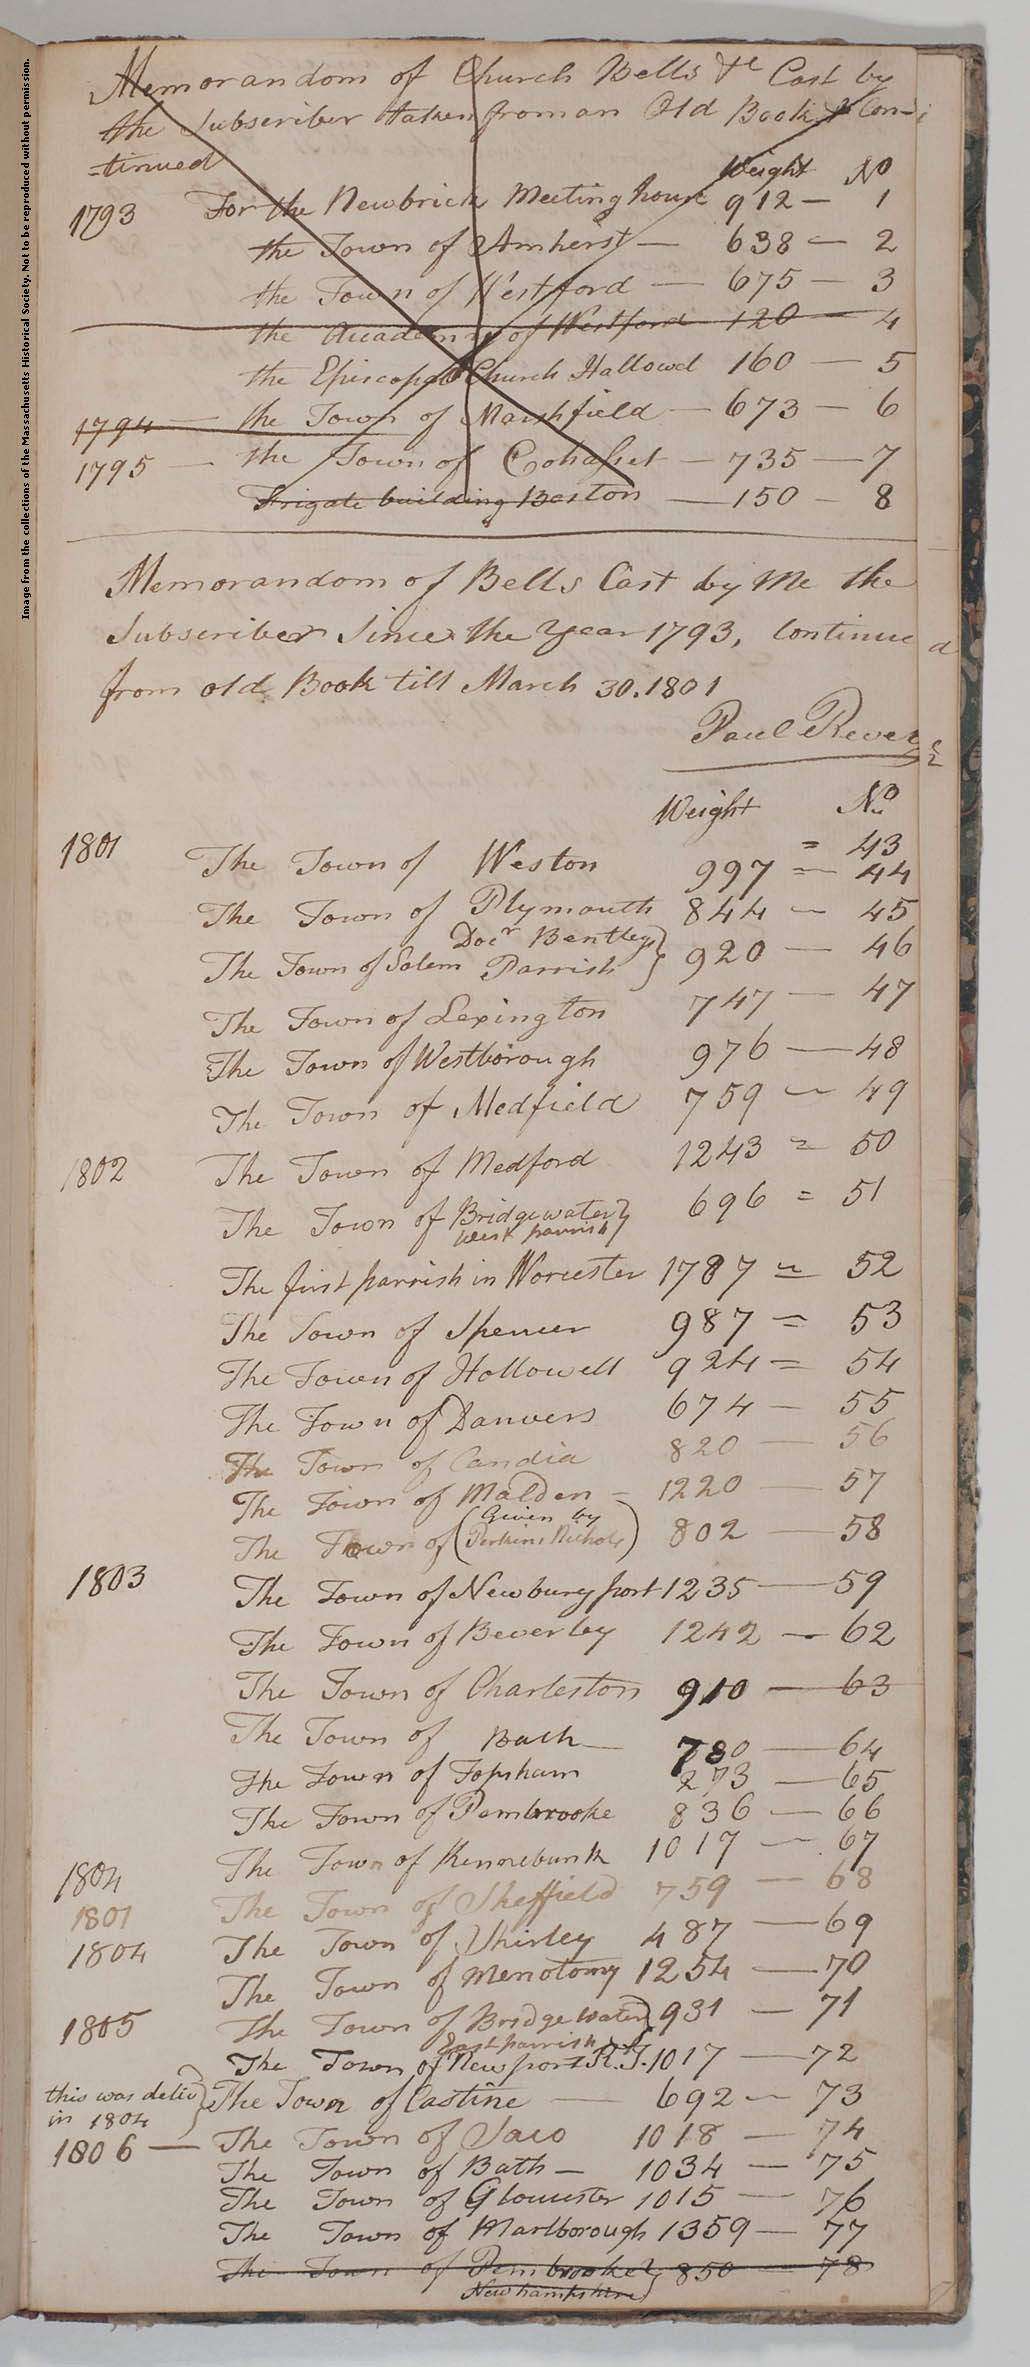 Memorandom of Church Bells &c Cast by
the Subscriber taken from an Old Book & Con-
=tinued
Weight No
1793 For the Newbrick Meeting house 912 — 1
the Town of Amherst — 638 — 2
the Town of Westford — 675 — 3
the Academy of Westford 120 — 4
the Episcopal Church Hallowel 160 — 5
1794 — the Town of Marshfield — 673 — 6
1795 — the Town of Cohasset — 735 — 7
Frigate building Boston — 150 — 8
Memorandom of Bells Cast by Me the
Subscriber Since the Year 1793, Continued
from old Book till March 30. 1801
Paul Revere
Weight No
= 43
1801 The Town of Weston 997 = 44
The Town of Plymouth 844 — 45
The Town of Salem Docr Bentleys Parrish } 920 — 46
The Town of Lexington 747 — 47
The Town of Westborough 976 — 48
The Town of Medfield 759 — 49
1802 The Town of Medford 1243 = 50
The Town of Bridgewater West parrish } 696 = 51
The first parrish in Worcester 1787 = 52
The Town of Spencer 987 = 53
The Town of Hollowell 924 = 54
The Town of Danvers 674 — 55
The Town of Candia 820 — 56
The Town of Malden — 1220 — 57
The Town of (Given by Perkins Nichols) 802 — 58
1803 The Town of Newburyport 1235 — 59
The Town of Beverley 1242 — 62
The Town of Charleston 910 — 63
The Town of Bath — 780 — 64
The Town of Topsham 273 — 65
The Town of Pembrooke 836 — 66
The Town of Kennebunk 1017 — 67
1804
1801 The Town of Sheffield 759 — 68
1804 The Town of Shirley 487 — 69
The Town of Menotomy 1254 — 70
1805 The Town of Bridgewater East parrish } 931 — 71
The Town of Newport R.I. 1017 — 72
this was deliv in 1804 } The Town of Castine — 692 — 73
1806 — The Town of Saco 1018 — 74
The Town of Bath — 1034 — 75
The Town of Gloucester 1015 — 76
The Town of Marlborough 1359 — 77
The Town of Pembrooke New hampshire } 850 — 78
Image from the collections of the Massachusetts Historical Society. Not to be reproduced without permission.